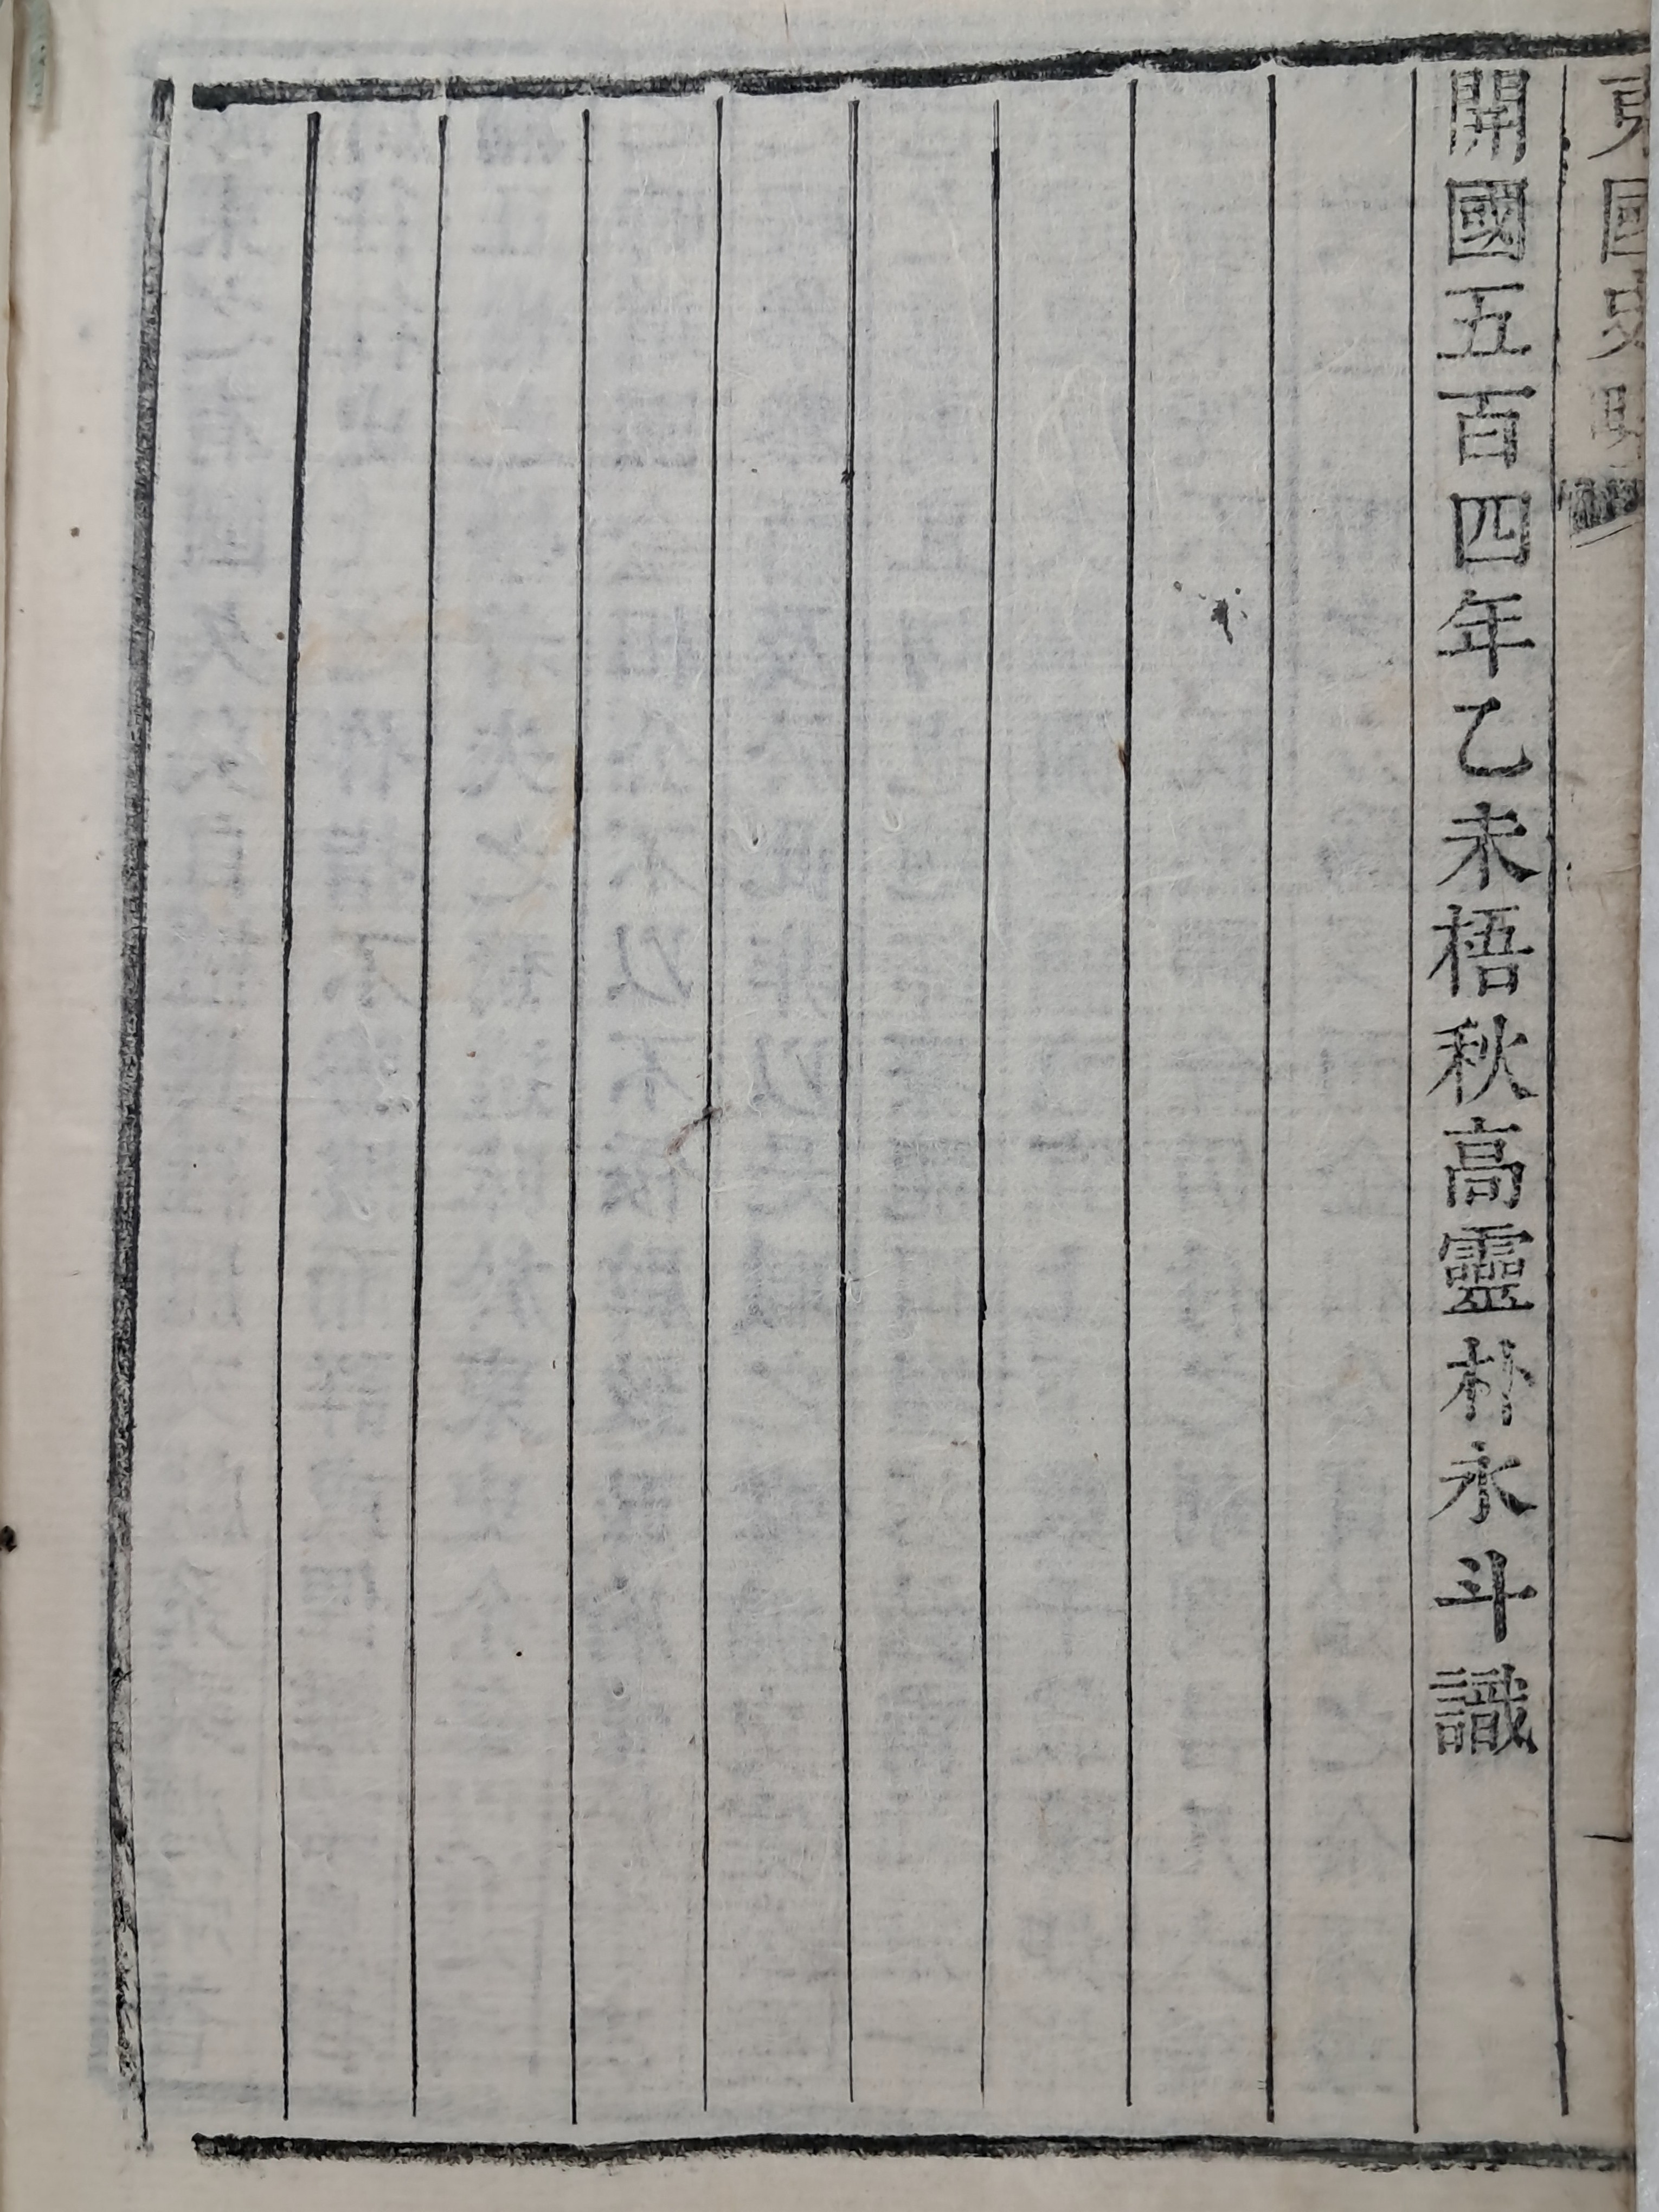 東國史略
開國五百四年乙未梧秋高靈朴永斗識